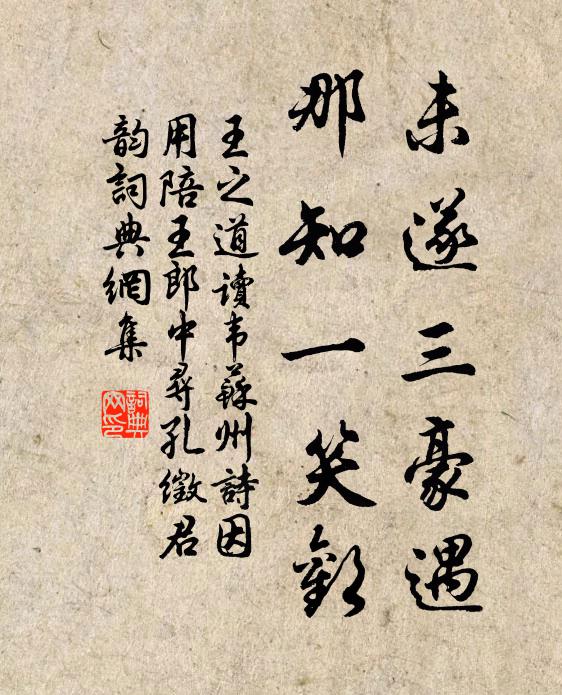 未遂三豪遇
那知一笑歡
王之道讀韦蘇州詩因
用陪王郎中尋孔徵君
韵詞典網集
詞典
网印